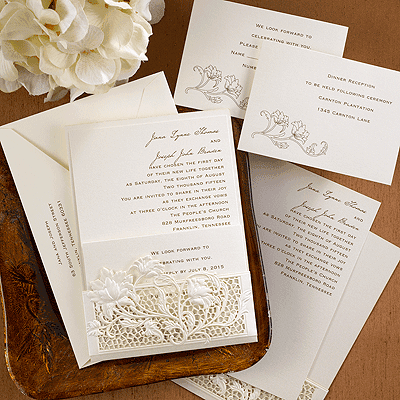 We look forward to
celebrating with you.
Please
Name
Number
Dinner Reception
to be held following ceremony
Carnton Plantation
1345 Carnton Lane
Jane Lynne Thomas
and
Joseph John Burden
have chosen the first day
of their new life together
as Saturday, the eighth of August
Two thousand fifteen
You are invited to share in their joy
as they exchange vows
at three o'clock in the afternoon
The People's Church
828 Murfreesboro Road
Franklin, Tennessee
We look forward to
celebrating with you.
reply by July 8, 2015
Jane Lynne
and
Joseph John
have chosen the first
of their new life toge
as Saturday, the eighth of
Two thousand fifteen
You are invited to share in t
as they exchange vow
at three o'clock in the aft
The People's Chur
828 Murfreesboro R
Franklin, Tennes